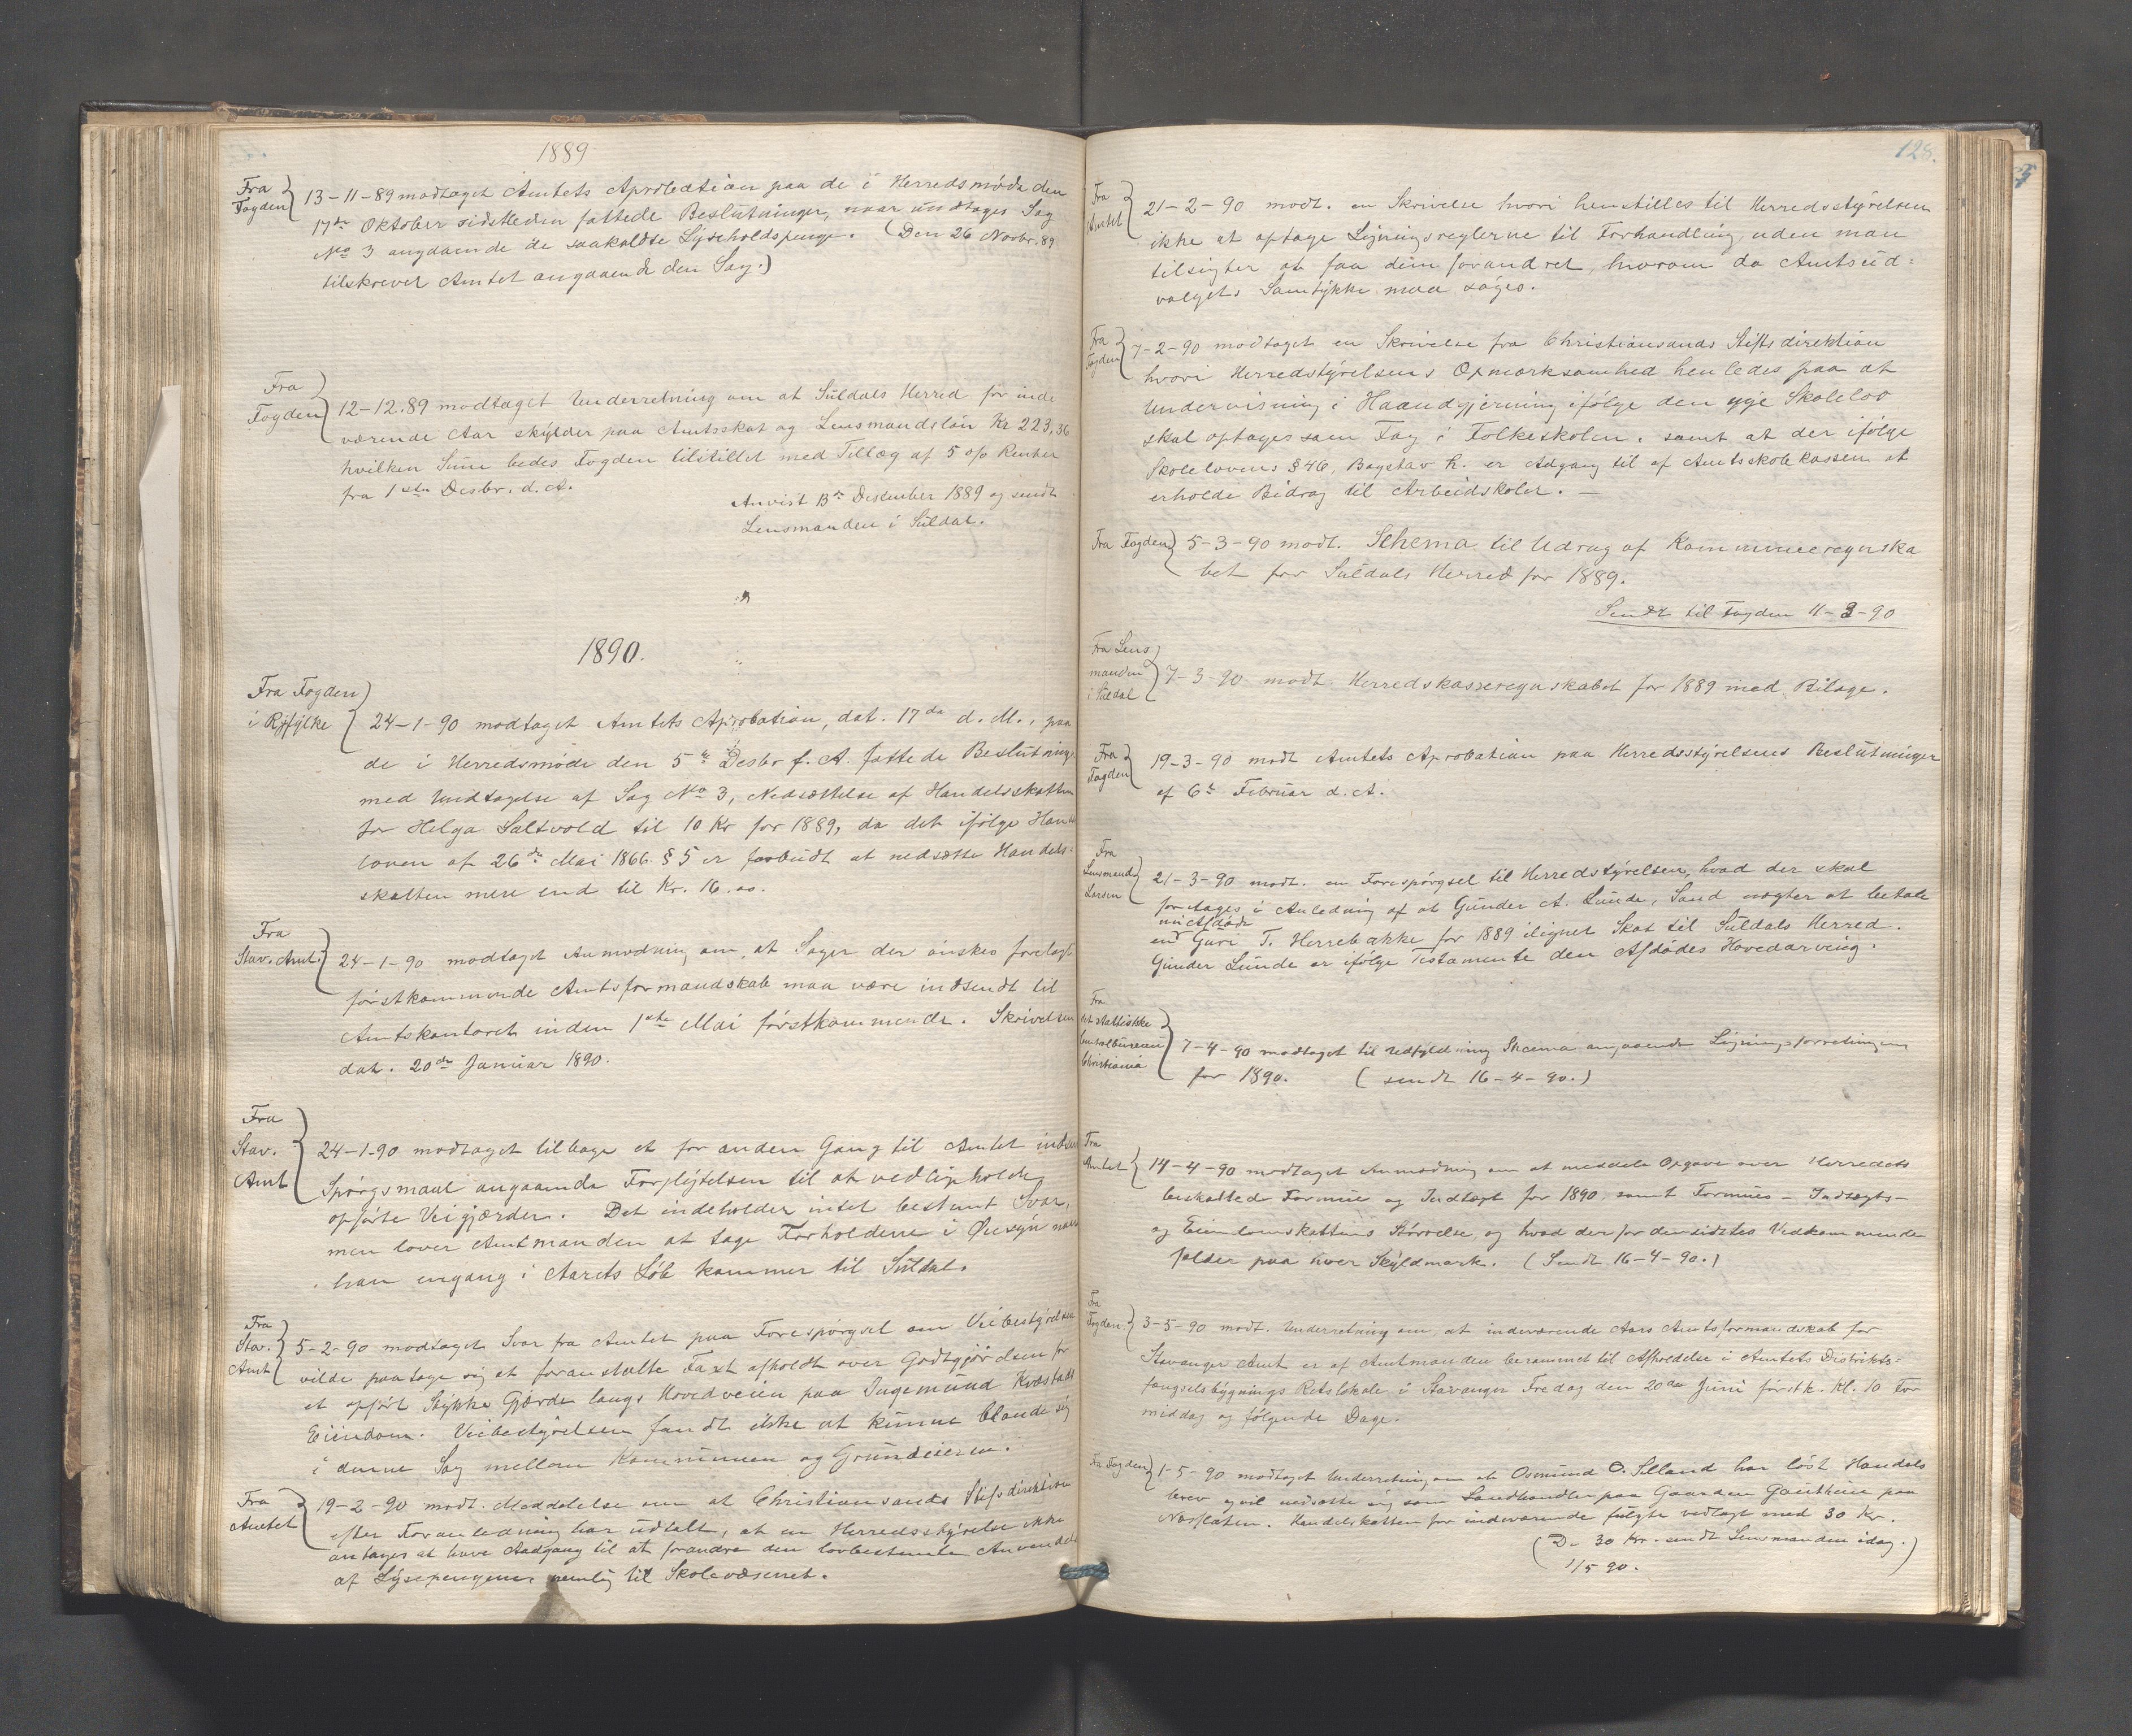 1889
Fra
Fogden
13-11-89 modtaget Amtets Aprobation paa de i Herredsmøde den
17de Oktober sidstleden fattede Beslutninger, naar undtages Sag
No 3 angaaende de saakaldte Lyseholdspenge. (Den 26 Novbr. 89
tilskrevet Amtet angaaende den Sag.)
Fra
Fogden
12-12.89 modtaget Underretning om at Suldals Herred for inde
værende Aar skylder paa Amtsskat og Lensmandsløn Kr 223,36
hvilken Sum bedes Fogden tilstillet med Tillæg af 5 o/o Renter
fra 1ste Desbr. d. A.
Anvist 13de Desember 1889 og sendt
Lensmanden i Suldal.
1890.
Fra Fogden
i Ryfylke
24-1-90 modtaget Amtets Aprobation, dat. 17de d. M., paa
de i Herredsmøde den 5te Desbr f. A. fattede Beslutninge
med Undtagelse af Sag No 3, Nedsættelse af Handelsskatten
for Helga Saltvold til 10 Kr for 1889, da det ifølge Han
loven af 26de Mai 1866 § 5 er forbudt at nedsætte Handels-
skatten mere end til Kr. 16.00.
Fra
Stav. Amt.
24-1-90 modtaget Anmodning om, at Sager der ønskes forelagt
førstkommende Amtsformandskab maa være indsendt til
Amtskontoret inden 1ste Mai førstkommende. Skrivelsen
dat. 20de Januar 1890.
Fra
Stav.
Amt
24-1-90 modtaget tilbage et for anden Gang til Amtet indse
Spørgsmaal angaaende Forpligtelsen til at vedligeholde
opførte Veigjærder. Det indeholder intet bestemt Svar,
men lover Amtmanden at tage Forholdene i Øiesyn naar
han engang i Aarets Løb kommer til Suldal.
Fra
Stav.
Amt
5-2-90 modtaget Svar fra Amtet paa Forespørgsel om Veibestyrelsen
vilde paatage sig at foranstalte Taxt afholdt over Godtgjørelsen for
et opført Stykke Gjærde langs Hovedveien paa Ingemund Kvæstads
Eiendom. Veibestyrelsen fandt ikke at kunne blande sig
i denne Sag mellem Kommunen og Grundeieren.
Fra
Amtet
19-2-90 modt. Meddelelse om at Christiansands Stiftsdirektion
efter Foranledning har udtalt, at en Herredsstyrelse ikke
antages at have Aadgang til at forandre den lovbestemte Anvendel
af Lysepengene nemlig til Skolevæsenet.
128.
Fra
Amtet
21-2-90 modt. en Skrivelse hvori henstilles til Herredsstyrelsen
ikke at optage Ligningsreglerne til Forhandling uden man
tilsigter at faa dem forandret, hvorom da Amtsud-
valgets Samtykke maa søges.
Fra
Fogden
7-2-90 modtaget en Skrivelse fra Christiansands Stiftsdirektion
hvori Herredstyrelsens Opmærksomhed henledes paa at
Undervisning i Haandgjerning ifølge den nye Skolelov
skal optages som Fag i Folkeskolen. samt at der ifølge
Skolelovens § 46, Bogstav h. er Adgang til af Amtsskolekassen at
erholde Bidrag til Arbeidskoler. —
Fra Fogden
5-3-90 modt. Schema til Udrag af Kommuneregnska
bet for Suldals Herred for 1889.
Sendt til Fogden 11-3-90
Fra Lens
manden
i Suldal
7-3-90 modt. Herredskasseregnskabet for 1889 med Bilage.
Fra
Fogden
19-3-90 modt Amtets Aprobation paa Herredsstyrelsens Beslutninger
af 6te Februar d. A.
Fra
Lensmand
Larsen
21-3-90 modt. en Forespørgsel til Herredstyrelsen, hvad der skal
foretages i Anledning af at Gunder A. Lunde, Sand nægter at betale
nu Afdøde
en Guri T. Herrebakke for 1889 ilignet Skat til Suldals Herred.
Gunder Lunde er ifølge Testamente den Afdødes Hovedarving.
Fra
det statistiske
Centralbureau
Christiania
7-4-90 modtaget til Udfyldning Skema angaaende Ligningsforretningen
for 1890. (sendt 16-4-90.)
Fra
Amtet
14-4-90 modtaget Anmodning om at meddele Opgave over Herredets
beskattede Formue og Indtægt for 1890 samt Formues- Indtægts-
og Eiendomsskattens Størrelse, og hvad der for den sidstes Vedkommende
falder paa hver Skyldmark. (Sendt 16-4-90.)
Fra
Fogden.
3-5-90 modt. Underretning om, at indeværende Aars Amtsformandskab for
Stavanger Amt er af Amtmanden berammet til Afholdelse i Amtets Distrikts-
fængselsbygnings Retslokale i Stavanger Fredag den 20de Juni førstk. Kl. 10 For
middag og følgende Dage.
Fra Fogden
1-5-90 modtaget Underretning om at Osmund O. Selland har løst Handels
brev og vil nedsætte sig som Landhandler paa Gaarden Gauthun paa
Næsflaten. Handelskatten for indeværende fulgte vedlagt med 30 Kr.
(De 30 Kr. sendt Lensmanden idag.)
1/5 90.